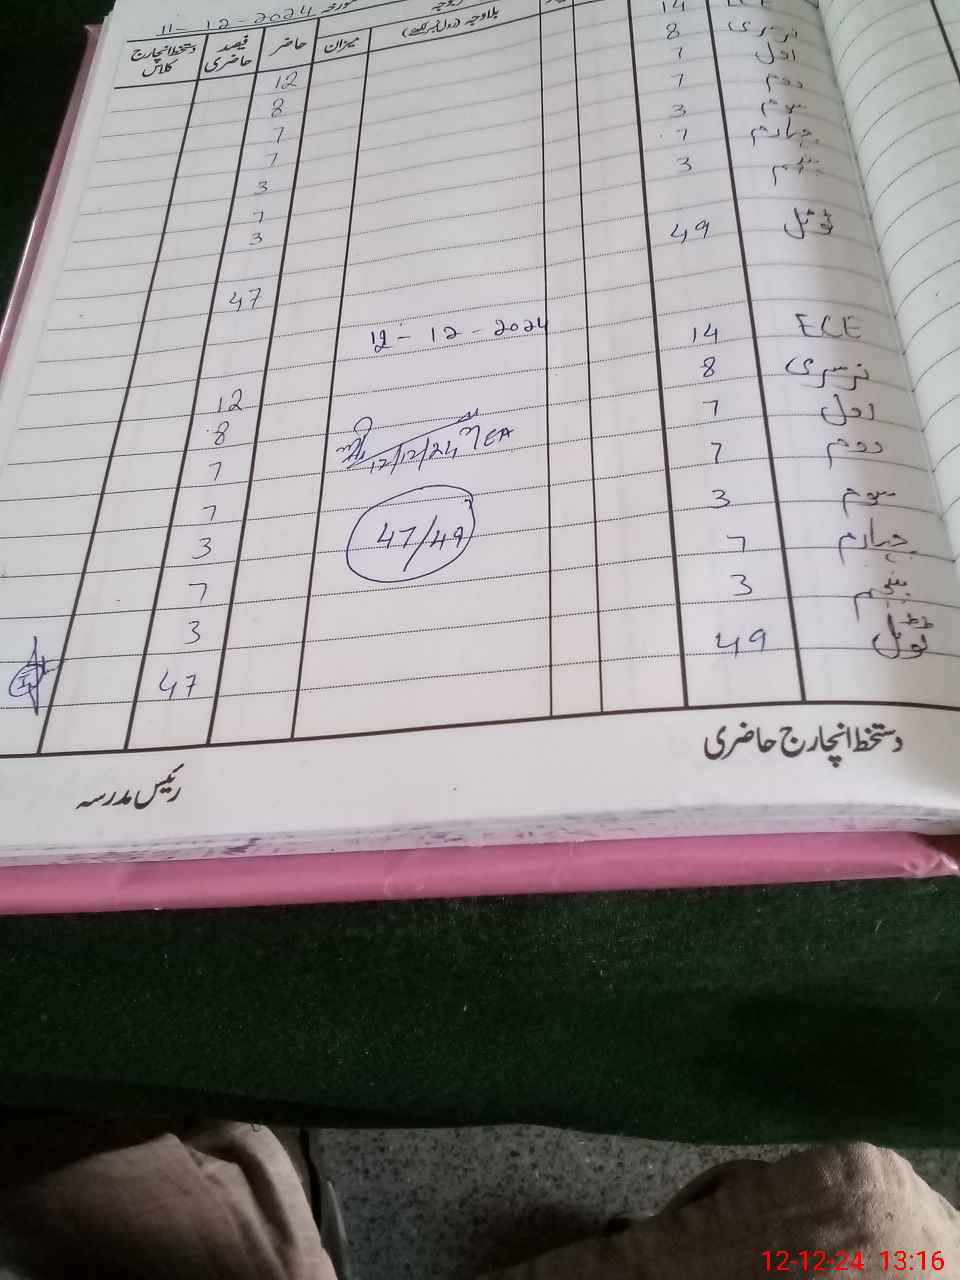 11-12-2024
دستخط انچارج کلاس فیصد حاضری حاضر میزان بلاوجہ (رول نمبر لکھیے)
ECE 14 12
نرسری 8 8
اول 7 7
دوم 7 7
سوم 3 3
چہارم 7 7
پنجم 3 3
ٹوٹل 49 47
12-12-2024
ECE 14 12
نرسری 8 8
اول 7 7
دوم 7 7
سوم 3 3
چہارم 7 7
پنجم 3 3
ٹوٹل 49 47
12/12/24 MEA
47/49
دستخط انچارج حاضری
رئیس مدرسہ
12-12-24 13:16